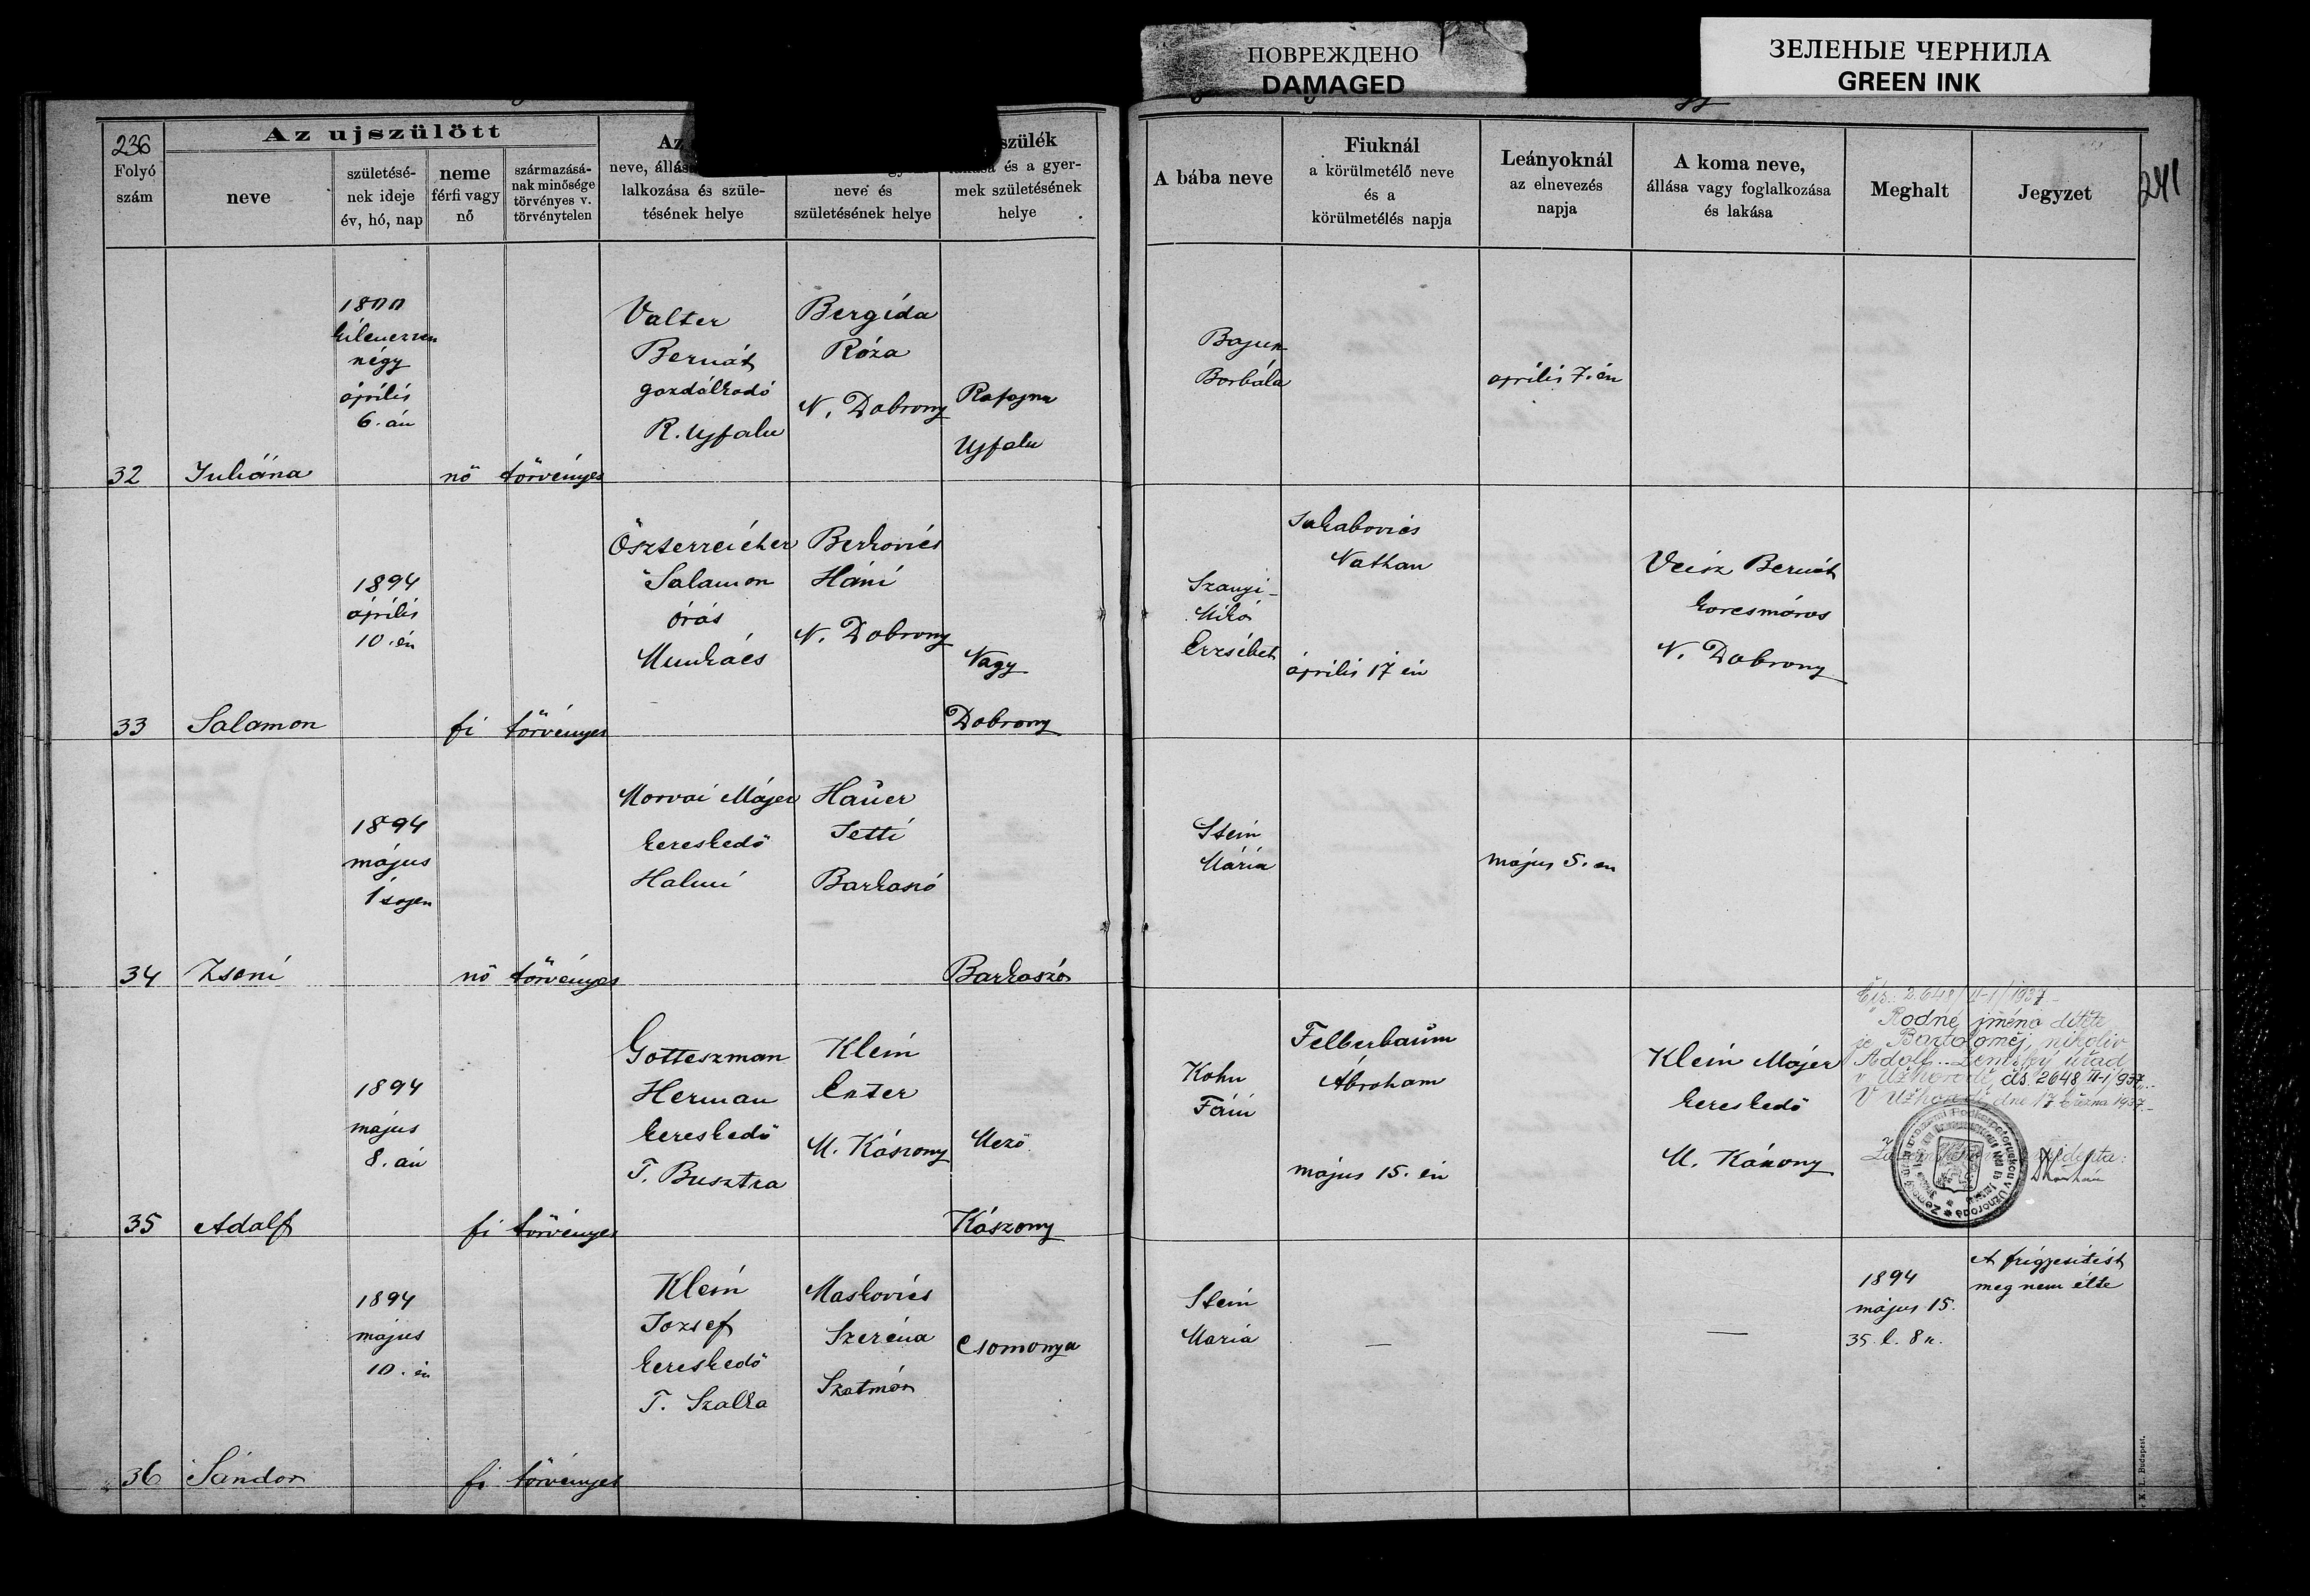 ПОВРЕЖДЕНО
DAMAGED
ЗЕЛЕНЫЕ ЧЕРНИЛА
GREEN INK
236
241
Az ujszülött
Folyó
szám
neve
születésé-
nek ideje
év, hó, nap
neme
férfi vagy
nő
származásá-
nak minősége
törvényes v.
törvénytelen
Az
neve, állás
lalkozása és szüle-
tésének helye
neve és
születésének helye
szülék
és a gyer-
mek születésének
helye
A bába neve
Fiuknál
a körülmetélő neve
és a
körülmetélés napja
Leányoknál
az elnevezés
napja
A koma neve,
állása vagy foglalkozása
és lakása
Meghalt
Jegyzet
32
Juliána
négy
április
6. án
nő
törvényes
Valter
Bernát
gazdálkodó
R. Ujfalu
Bergida
Róza
N. Dobrony
Rafajna
Ujfalu
Borbála
április 7. én
33
Salamon
1894
április
10. én
fi
törvényes
Öszterreicher
Salamon
órás
Munkács
Berkovics
Háni
N. Dobrony
Nagy
Dobrony
Szanyi-
Mikó
Erzsébet
Jakabovics
Nathan
április 17 én
Veisz Bernát
korcsmáros
N. Dobrony
34
Zseni
1894
május
1 sején
nő
törvényes
Morvai Májer
kereskedő
Halmi
Hauer
Jetti
Barkaszó
Barkaszó
Stein
Mária
május 5. én
35
Adolf
1894
május
8. án
fi
törvényes
Gotteszman
Herman
kereskedő
T. Busztra
Klein
Eszter
M. Kászony
Mező
Kászony
Kohn
Fáni
Felberbaum
Ábraham
május 15. én
Klein Májer
kereskedő
M. Kászony
Čís.: 2.648/II-1/1937.-
Rodné jméno dítěte
je Bartoloměj, nikoliv
Adolf. Zemský úřad
v Užhorodě, čís. 2648/III-1/937.-
V Užhorodě dne 17 března 1937.-
36
Sándor
1894
május
10. én
fi
törvényes
Klein
Jozsef
kereskedő
T. Szalka
Maskovics
Szeréna
Szatmár
Csomonya
Stein
Maria
—
—
1894
május 15.
35. l. 8 sz.
A frigyesítést
meg nem élte
K. I. Budapest.